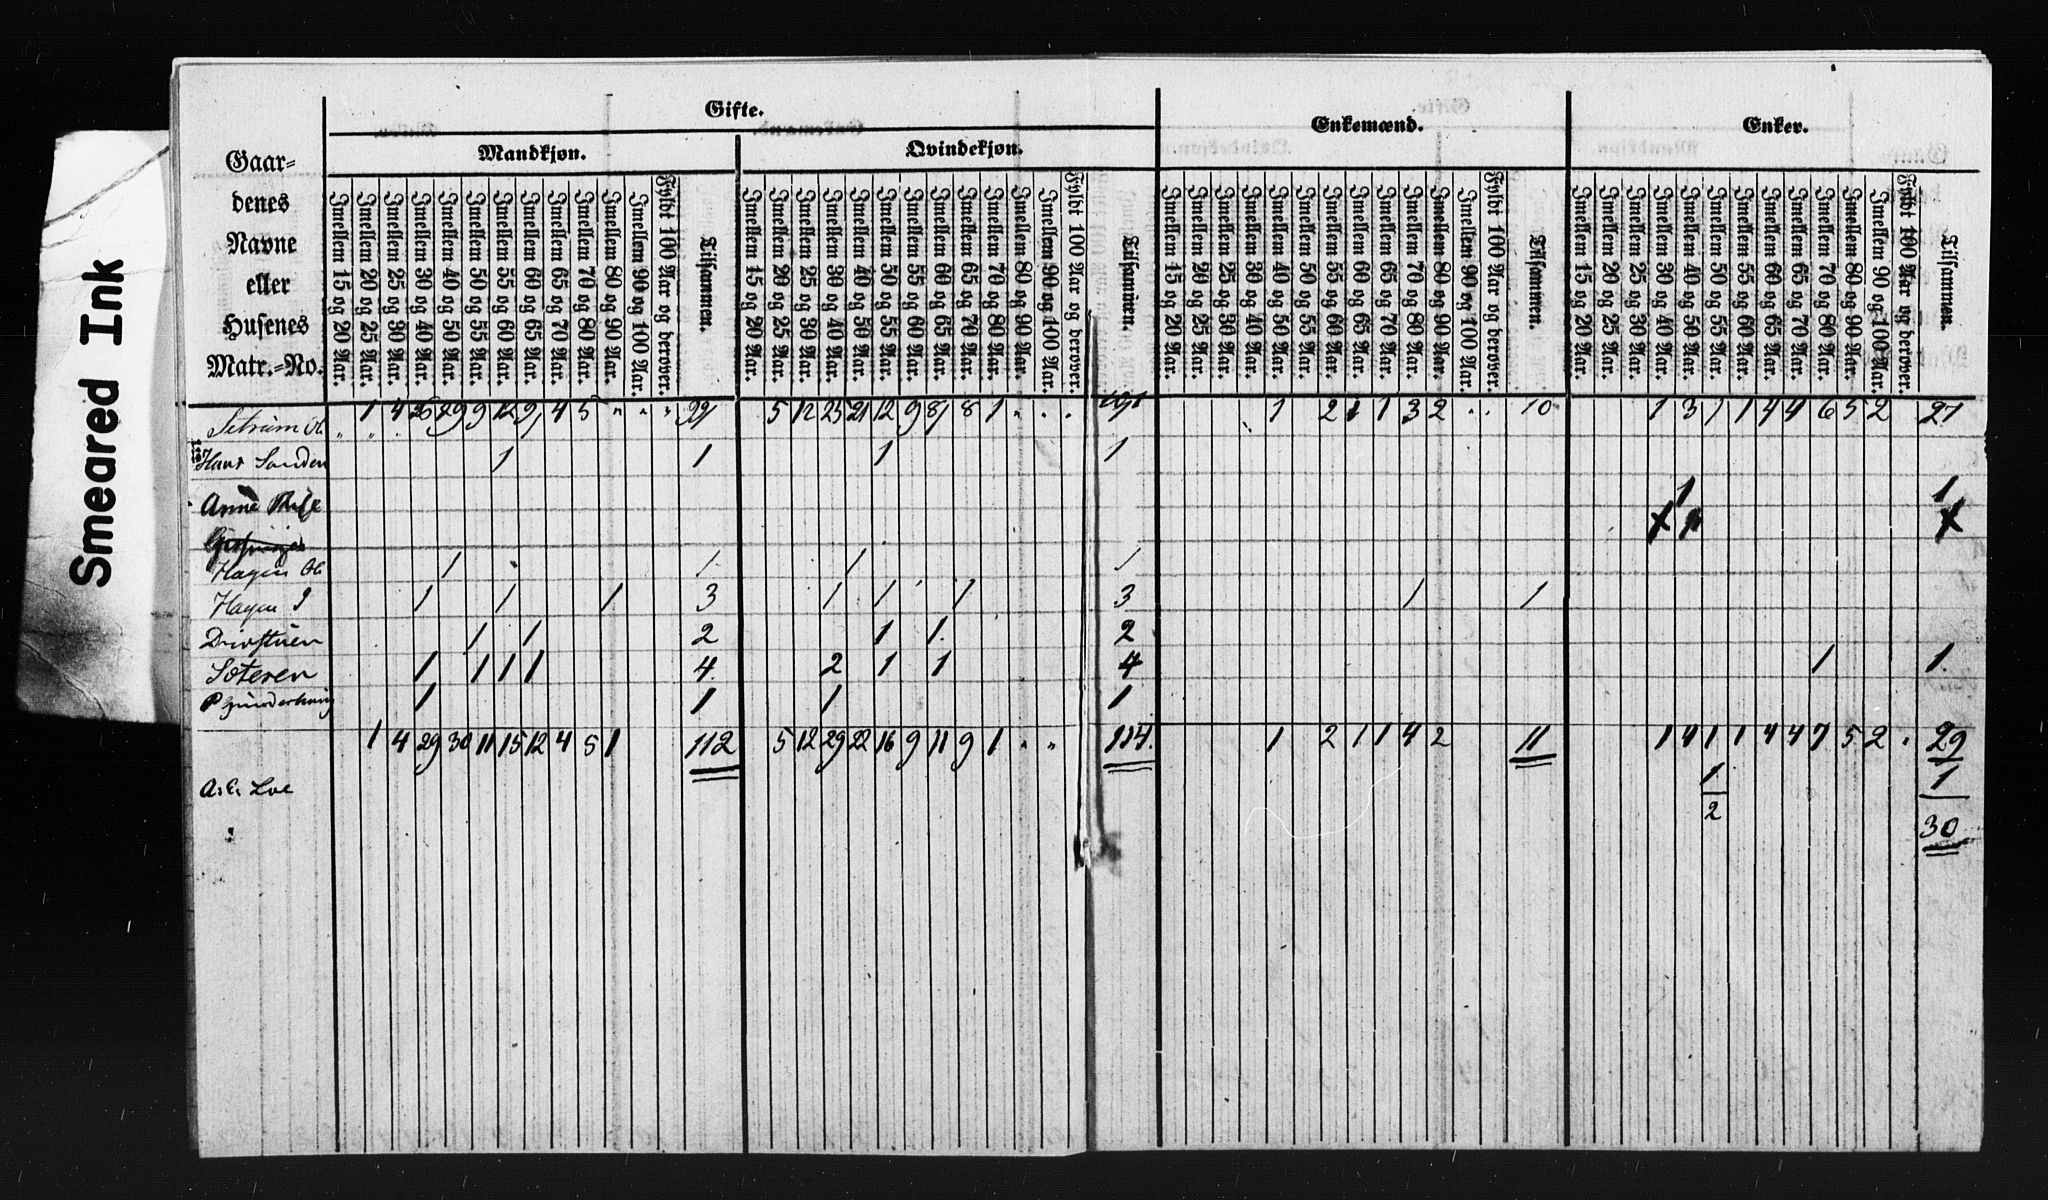 Smeared Ink
Gifte.
Enkemænd.
Enker.
Mandkjøn.
Qvindekjøn.
Gaar-
denes
Navne
eller
Husenes
Matr.-No.
Imellem 15 og 20 Aar.
Imellem 20 og 25 Aar.
Imellem 25 og 30 Aar.
Imellem 30 og 40 Aar.
Imellem 40 og 50 Aar.
Imellem 50 og 55 Aar.
Imellem 55 og 60 Aar.
Imellem 60 og 65 Aar.
Imellem 65 og 70 Aar.
Imellem 70 og 80 Aar.
Imellem 80 og 90 Aar.
Imellem 90 og 100 Aar.
Fyldt 100 Aar og derover.
Tilsammen.
Imellem 15 og 20 Aar.
Imellem 20 og 25 Aar.
Imellem 25 og 30 Aar.
Imellem 30 og 40 Aar.
Imellem 40 og 50 Aar.
Imellem 50 og 55 Aar.
Imellem 55 og 60 Aar.
Imellem 60 og 65 Aar.
Imellem 65 og 70 Aar.
Imellem 70 og 80 Aar.
Imellem 80 og 90 Aar.
Imellem 90 og 100 Aar.
Fyldt 100 Aar og derover.
Tilsammen.
Imellem 15 og 20 Aar.
Imellem 20 og 25 Aar.
Imellem 25 og 30 Aar.
Imellem 30 og 40 Aar.
Imellem 40 og 50 Aar.
Imellem 50 og 55 Aar.
Imellem 55 og 60 Aar.
Imellem 60 og 65 Aar.
Imellem 65 og 70 Aar.
Imellem 70 og 80 Aar.
Imellem 80 og 90 Aar.
Imellem 90 og 100 Aar.
Fyldt 100 Aar og derover.
Tilsammen.
Imellem 15 og 20 Aar.
Imellem 20 og 25 Aar.
Imellem 25 og 30 Aar.
Imellem 30 og 40 Aar.
Imellem 40 og 50 Aar.
Imellem 50 og 55 Aar.
Imellem 55 og 60 Aar.
Imellem 60 og 65 Aar.
Imellem 65 og 70 Aar.
Imellem 70 og 80 Aar.
Imellem 80 og 90 Aar.
Imellem 90 og 100 Aar.
Fyldt 100 Aar og derover.
Tilsammen.
1 4 29 9 12 9 4 5 " " " 99 5 12 25 21 12 9 8 8 1 " . . 1 2 1 1 3 2 . . 10 1 3 1 1 4 4 6 5 2 27
Hans 1 1 1 1
Anne 1 1
Hagen 1 1 1 1
Hagen 1 1 1 3 1 1 1 3 1 1
Drivstuen 1 1 2 1 1. 2
Sæteren 1 1 1 1 4. 2 1 1 4 1 1.
1 1 1 1
1 4 29 30 11 15 12 4 5 1 112 5 12 29 22 16 9 11 9 1 " " 114. 1 2 1 1 4 2 11 1 4 1 1 4 4 7 5 2 " 29
A. E. Loe 1 1
2 30